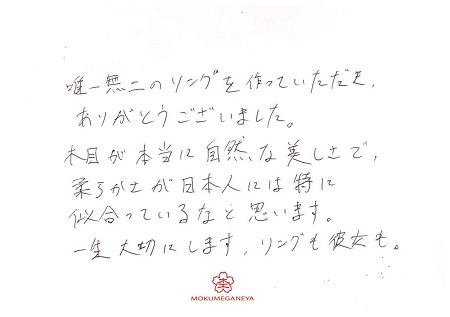 唯一無二のリングを作っていただき、
ありがとうございました。
木目が本当に自然な美しさで、
柔らかさが日本人には特に
似合っているなと思います。
一生大切にします、リングも彼女も。
MOKUMEGANEYA